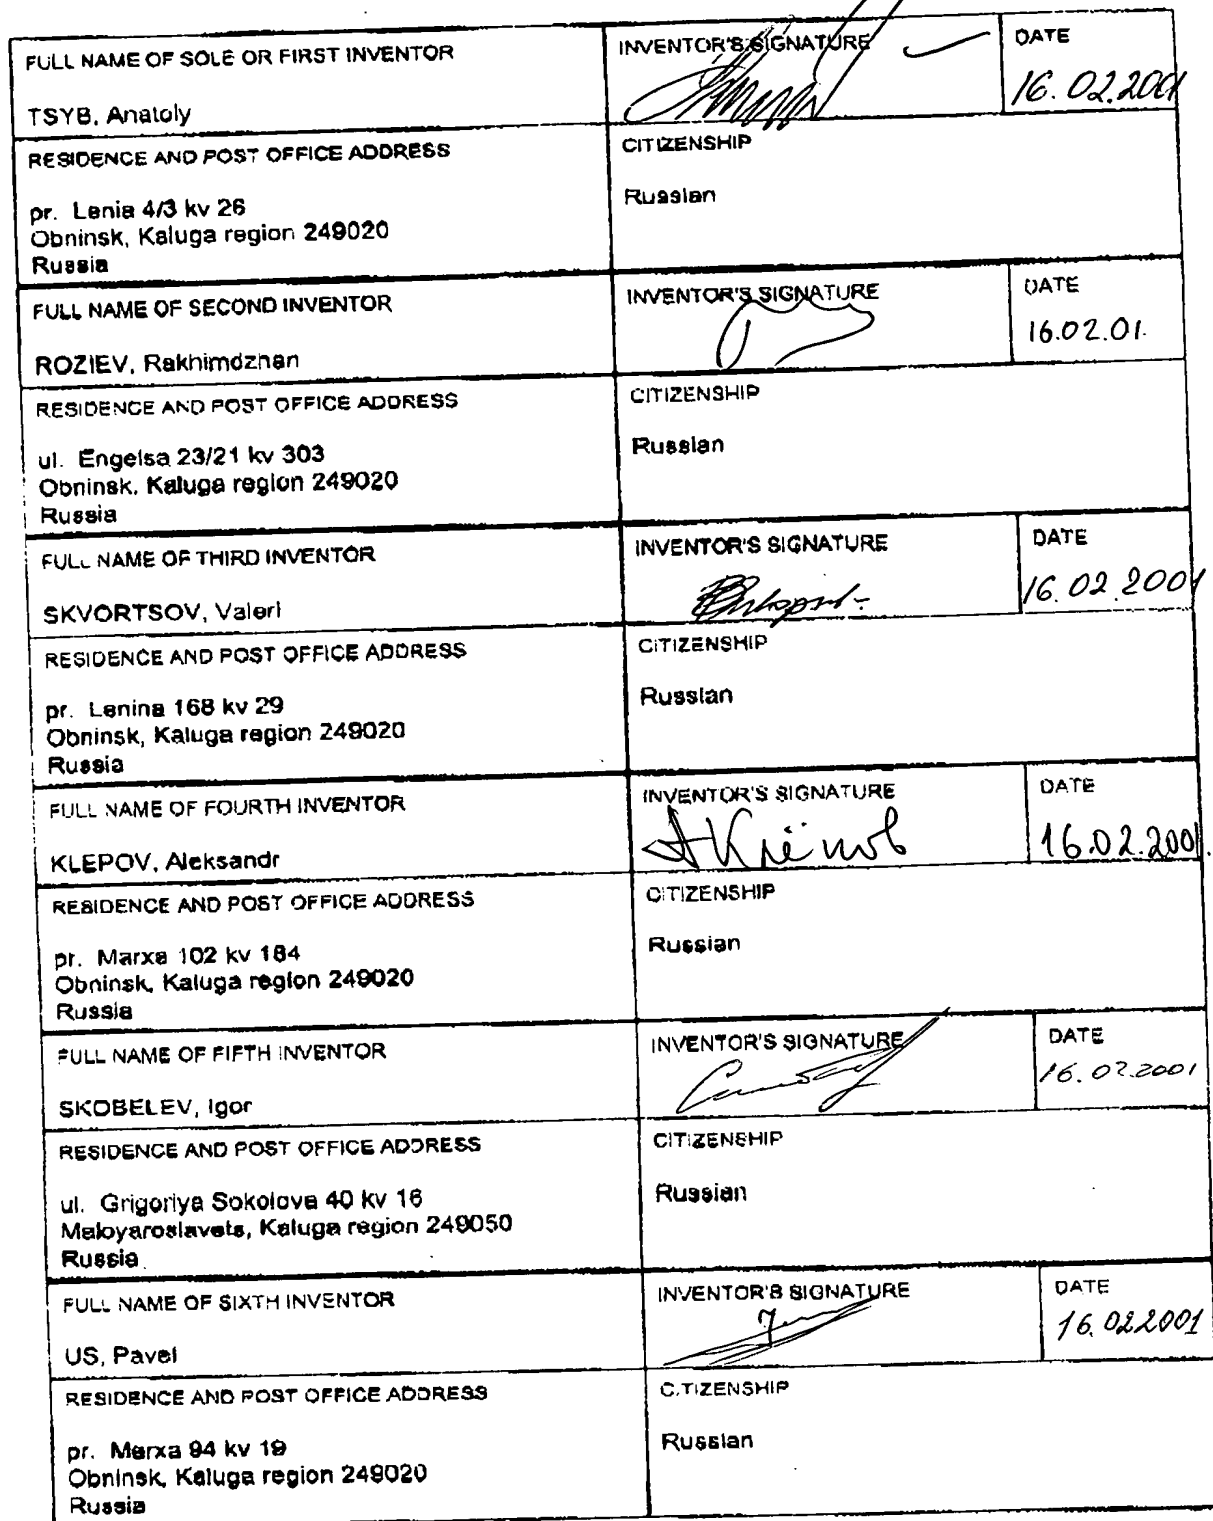 FULL NAME OF SOLE OR FIRST INVENTOR
TSYB, Anatoly
INVENTOR'S SIGNATURE
DATE
16.02.2001
RESIDENCE AND POST OFFICE ADDRESS
pr. Lenia 4/3 kv 26
Obninsk, Kaluga region 249020
Russia
CITIZENSHIP
Russian
FULL NAME OF SECOND INVENTOR
ROZIEV, Rakhimdzhan
INVENTOR'S SIGNATURE
DATE
16.02.01.
RESIDENCE AND POST OFFICE ADDRESS
ul. Engelsa 23/21 kv 303
Obninsk, Kaluga region 249020
Russia
CITIZENSHIP
Russian
FULL NAME OF THIRD INVENTOR
SKVORTSOV, Valeri
INVENTOR'S SIGNATURE
DATE
16.02.2001
RESIDENCE AND POST OFFICE ADDRESS
pr. Lenina 168 kv 29
Obninsk, Kaluga region 249020
Russia
CITIZENSHIP
Russian
FULL NAME OF FOURTH INVENTOR
KLEPOV, Aleksandr
INVENTOR'S SIGNATURE
АКлёпов
DATE
16.02.2001.
RESIDENCE AND POST OFFICE ADDRESS
pr. Marxa 102 kv 184
Obninsk, Kaluga region 249020
Russia
CITIZENSHIP
Russian
FULL NAME OF FIFTH INVENTOR
SKOBELEV, Igor
INVENTOR'S SIGNATURE
DATE
16.02.2001
RESIDENCE AND POST OFFICE ADDRESS
ul. Grigoriya Sokolova 40 kv 16
Maloyaroslavets, Kaluga region 249050
Russia
CITIZENSHIP
Russian
FULL NAME OF SIXTH INVENTOR
US, Pavel
INVENTOR'S SIGNATURE
DATE
16.02.2001
RESIDENCE AND POST OFFICE ADDRESS
pr. Marxa 94 kv 19
Obninsk, Kaluga region 249020
Russia
CITIZENSHIP
Russian